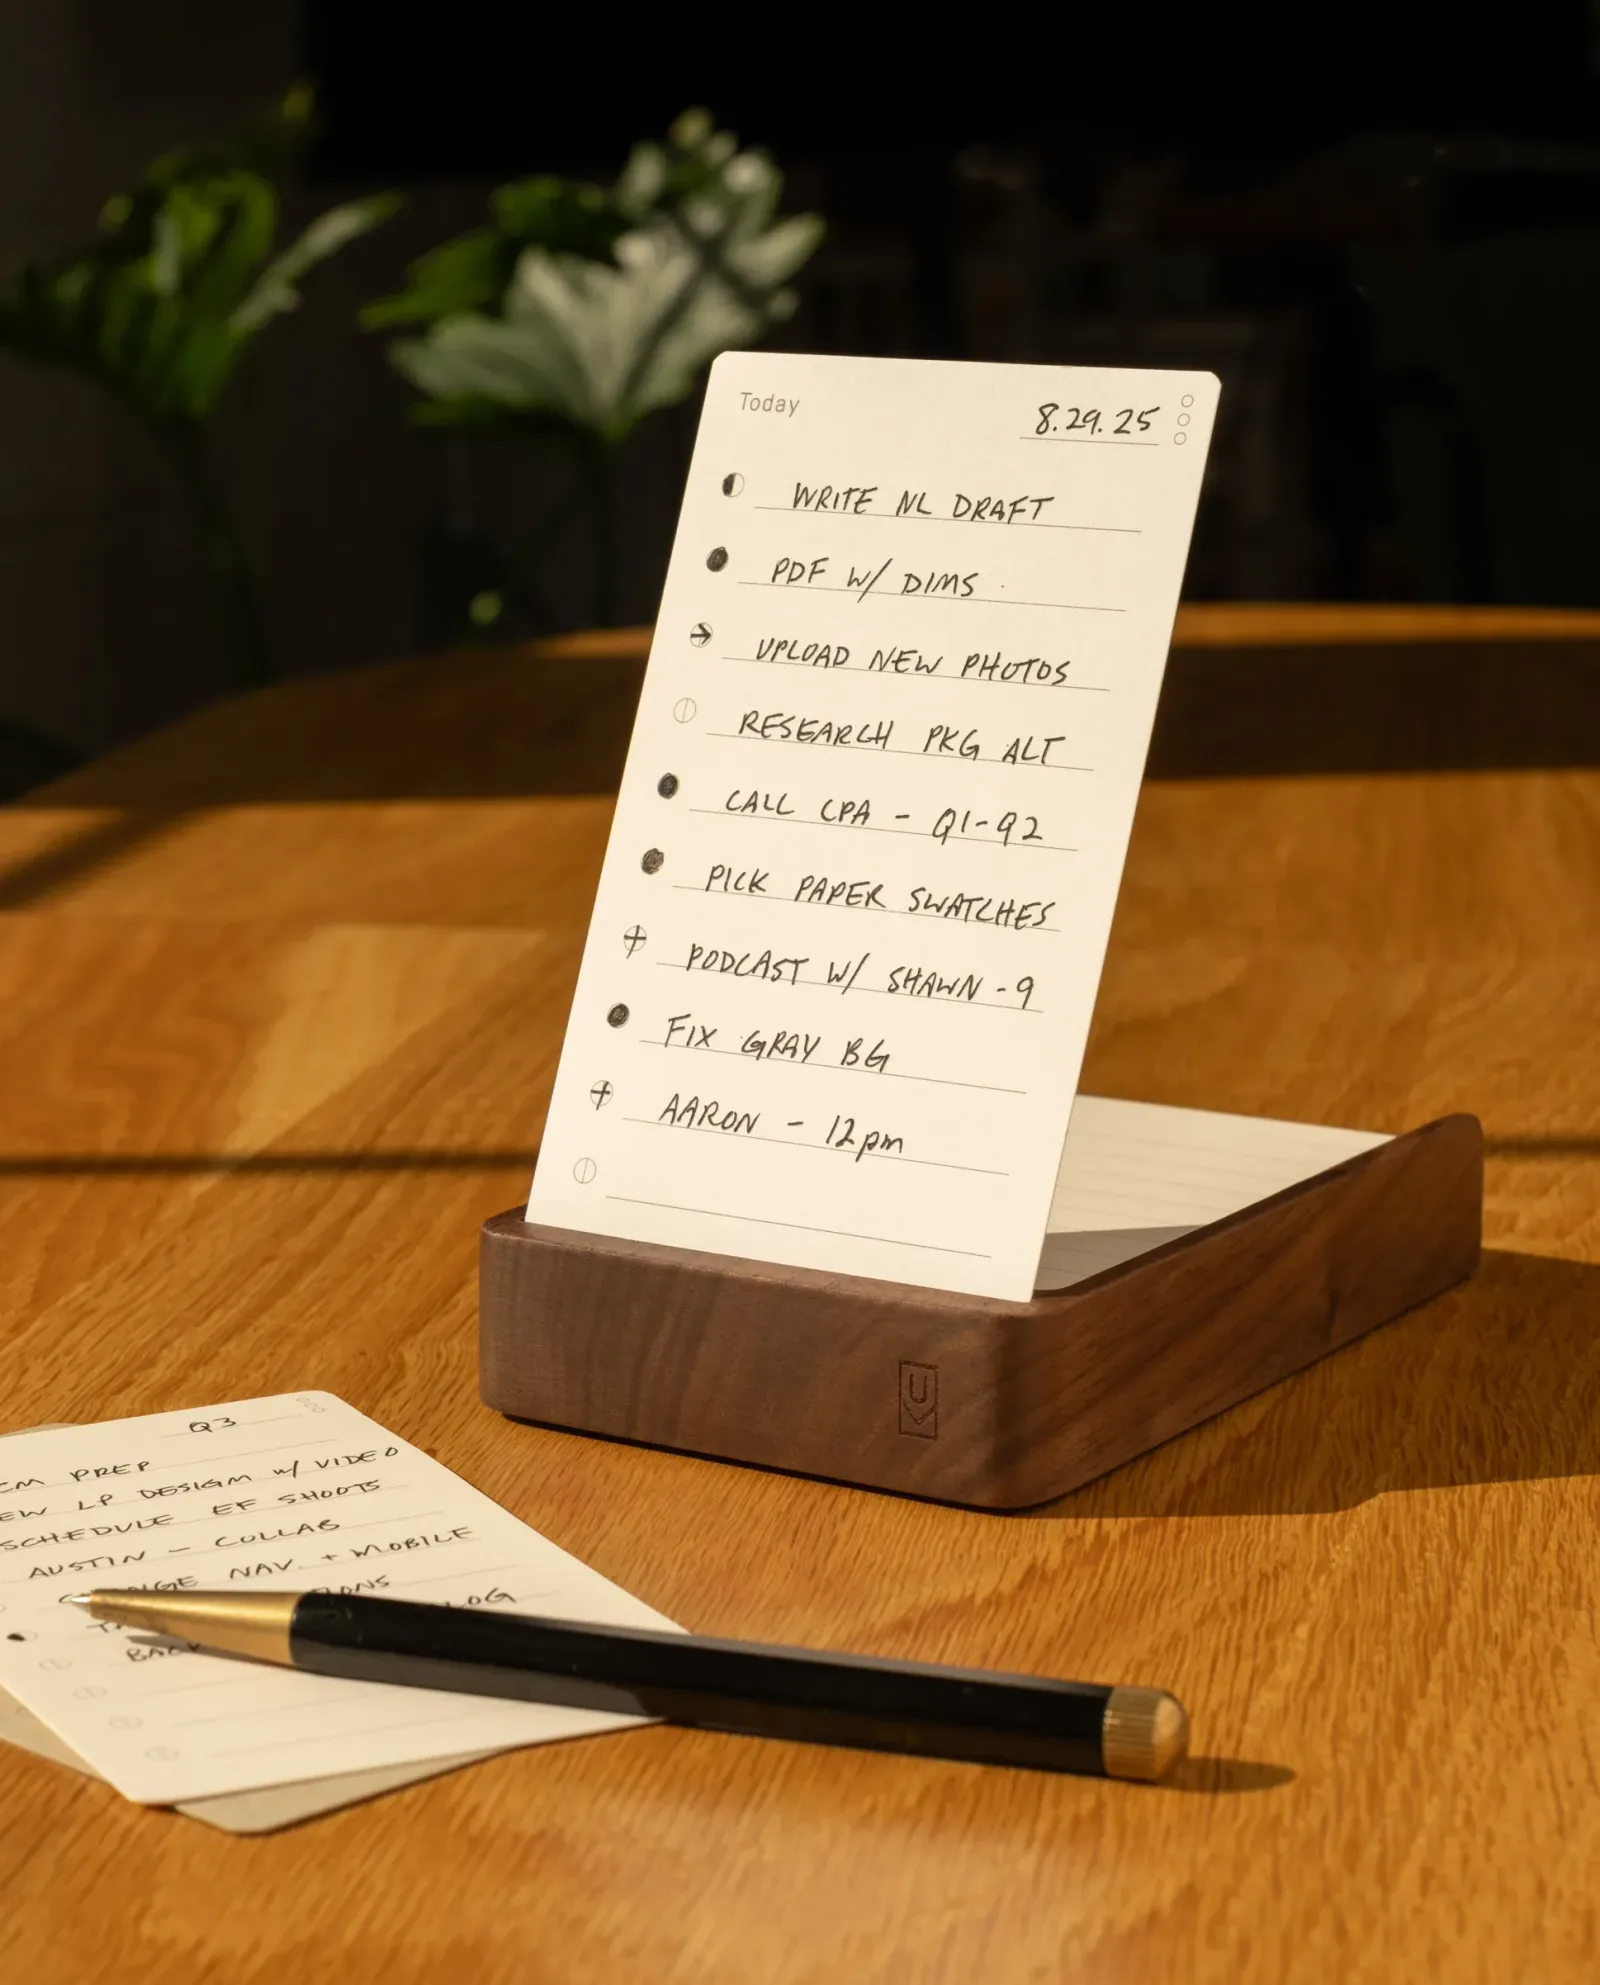 Today
8.29.25
WRITE NL DRAFT
PDF W/ DIMS
UPLOAD NEW PHOTOS
RESEARCH PKG ALT
CALL CPA - Q1-Q2
PICK PAPER SWATCHES
PODCAST W/ SHAWN - 9
FIX GRAY BG
AARON - 12pm
U
Q3
PREP
LP DESIGN w/ VIDEO
SCHEDULE EF SHOOTS
AUSTIN - COLLAB
NAV. + MOBILE